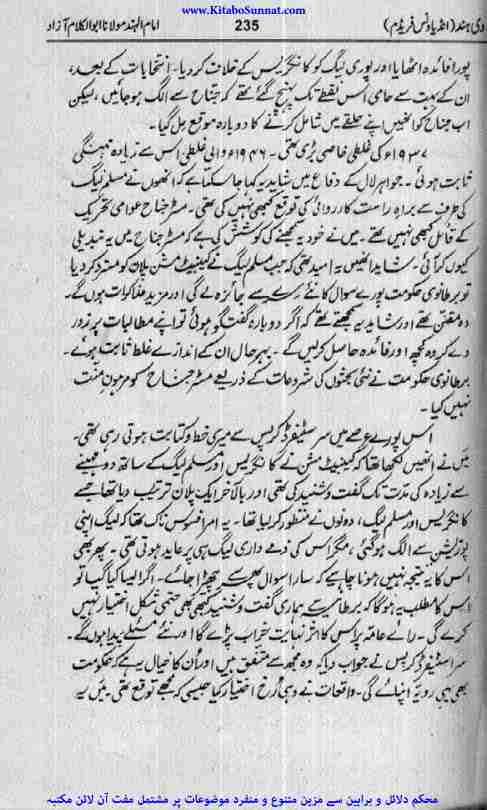 www.KitaboSunnat.com
دی ہند (انڈیا ونس فریڈم) 235 امام الہند مولانا ابوالکلام آزاد
پورا فائدہ اٹھایا اور پوری لیگ کو کانگریس کے خلاف کردیا۔ انتخابات کے بعد،
ان کے بہت سے حامی اُس نقطے تک پہنچ گئے تھے کہ جناح سے الگ ہو جائیں، لیکن
اب جناح کو انھیں اپنے حلقے میں شامل کرنے کا دوبارہ موقع مل گیا۔
۱۹۳۷ء کی غلطی خاصی بُری تھی۔ ۱۹۴۶ء والی غلطی اس سے زیادہ مہنگی
ثابت ہوئی۔ جواہر لال کے دفاع میں شاید یہ کہا جاسکتا ہے کہ انھوں نے مسلم لیگ
کی طرف سے براہِ راست کارروائی کی توقع کبھی نہیں کی تھی۔ مسٹر جناح عوامی تحریک
کے قائل کبھی نہیں تھے۔ میں نے خود یہ سمجھنے کی کوشش کی ہے کہ مسٹر جناح میں یہ تبدیلی
کیوں کر آئی۔ شاید انھیں یہ امید تھی کہ جب مسلم لیگ نے کیبنیٹ مشن پلان کو مسترد کر دیا
تو برطانوی حکومت پورے سوال کا نئے سرے سے جائزہ لے گی اور مزید مذاکرات ہوں گے۔
وہ مقنن تھے اور شاید یہ سمجھتے تھے کہ اگر دوبارہ گفتگو ہوئی تو اپنے مطالبات پر زور
دے کر وہ کچھ اور فائدہ حاصل کرلیں گے۔ بہرحال ان کے اندازے غلط ثابت ہوئے۔
برطانوی حکومت نے نئی بحثوں کی شروعات کے ذریعے مسٹر جناح کو مرہونِ منت
نہیں کیا۔
اس پورے عرصے میں سر سٹیفرڈ کرپس سے میری خط و کتابت ہوتی رہی تھی۔
میں نے انھیں لکھا تھا کہ کیبنیٹ مشن نے کانگریس اور مسلم لیگ کے ساتھ دو مہینے
سے زیادہ کی مدت تک گفت و شنید کی تھی اور بالآخر ایک پلان ترتیب دیا تھا جسے
کانگریس اور مسلم لیگ، دونوں نے منظور کرلیا تھا۔ یہ امر افسوس ناک تھا کہ لیگ اپنی
پوزیشن سے الگ ہوگئی، مگر اس کی ذمے داری لیگ ہی پر عاید ہوتی تھی۔ پھر بھی
اس کا یہ نتیجہ نہیں ہونا چاہیے کہ سارا سوال پھر سے چھیڑا جائے۔ اگر ایسا کیا گیا تو
اس کا مطلب یہ ہوگا کہ برطانیہ سے ہماری گفت و شنید کبھی بھی حتمی شکل اختیار نہیں
کرے گی۔ رائے عامہ پر اس کا اثر نہایت خراب پڑے گا اور نئے مسئلے پیدا ہوں گے۔
سر اسٹیفرڈ کرپس نے جواب دیا کہ وہ مجھ سے متفق ہیں اور اُن کا خیال یہ ہے کہ حکومت
بھی یہی رویّہ اپنائے گی۔ واقعات نے وہی رُخ اختیار کیا جیسی کہ مجھے توقع تھی۔ میں یہ
محکم دلائل و براہین سے مزین متنوع و منفرد موضوعات پر مشتمل مفت آن لائن مکتبہ